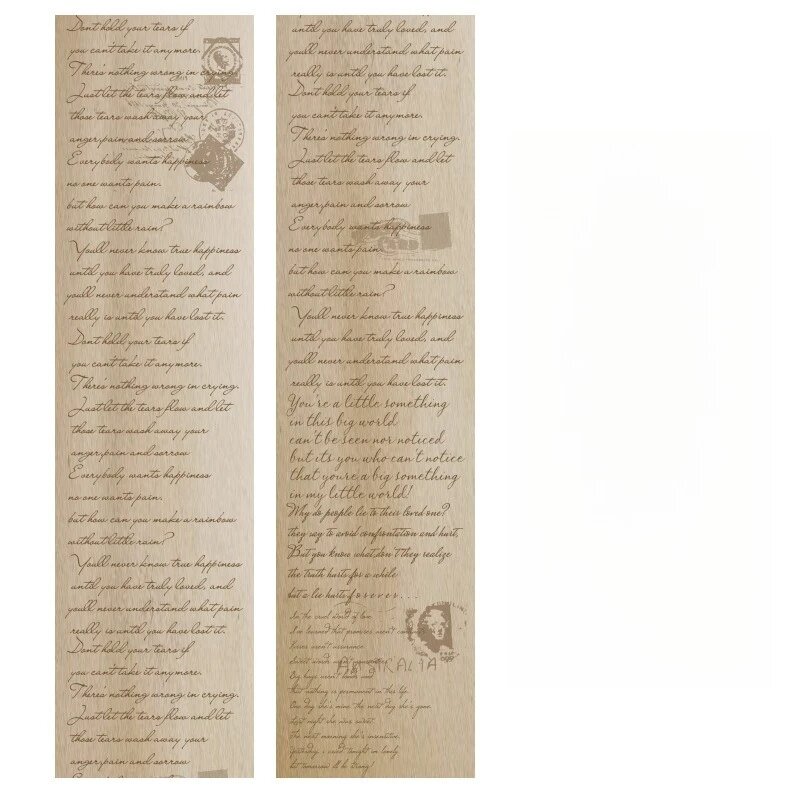 Dont hold your tears if
you can't take it anymore.
There's nothing wrong in crying.
Just let the tears flow and let
those tears wash away your
anger, pain and sorrow
Everybody wants happiness
no one wants pain.
but how can you make a rainbow
without little rain?
You'll never know true happiness
until you have truly loved, and
you'll never understand what pain
really is until you have lost it.
Dont hold your tears if
you can't take it anymore.
There's nothing wrong in crying.
Just let the tears flow and let
those tears wash away your
anger, pain and sorrow
Everybody wants happiness
no one wants pain.
but how can you make a rainbow
without little rain?
You'll never know true happiness
until you have truly loved, and
you'll never understand what pain
really is until you have lost it.
Dont hold your tears if
you can't take it anymore.
There's nothing wrong in crying.
Just let the tears flow and let
those tears wash away your
anger, pain and sorrow
until you have truly loved, and
you'll never understand what pain
really is until you have lost it.
Dont hold your tears if
you can't take it anymore.
There's nothing wrong in crying.
Just let the tears flow and let
those tears wash away your
anger, pain and sorrow
Everybody wants happiness
no one wants pain.
but how can you make a rainbow
without little rain?
You'll never know true happiness
until you have truly loved, and
you'll never understand what pain
really is until you have lost it.
You're a little something
in this big world
can't be seen nor noticed
but its you who can't notice
that you're a big something
in my little world!
Why do people lie to their loved one?
they say to avoid confrontation and hurt,
But you know what don't they realize
the truth hurts for a whole
but a lie hurts forever...
In the cruel world of love
I've learned that promises aren't
Kisses aren't assurance
Sweet words aren't
Big hugs aren't
That nothing is permanent in this life.
One day she's mine the next day she's gone.
Last night she was sweet.
The next morning she's insensitive.
Yesterday i used tonight im lonely
but tomorrow ill be strong!
AUSTRALIA